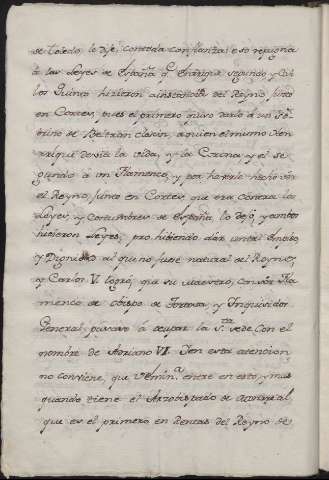 de Toledo le dijé, con toda confianza: eso repugna
à las Leyes de España, q.e Enrrique segundo, y Car
los Quinto hizieron à instancia del Reyno junto
en Cortes, pues el primero quiso darlo à un so
brino de Beltran Claquin, a quien el mismo Hen
rrique devia la vida, y la Corona y el se
gundo à un Flamenco, y por haverle hecho ver
el Reyno junto en Cortes, que era contra las
Leyes, y costumbres de España, lo dejó, y ambos
hicieron Leyes, prohibiendo dár un tal Empleo,
y Dignidad al que no fuese natural del Reyno,
y Carlos V. logró, que su Maestro, con ser Fla
menco de Obispo de Tortosa, y Inquisidor
General, pasase à ocupar la S.ta Sede con el
nombre de Adriano VI. Y en esta atencion
no conviene, que V. Emin.a entre en esto, y mas
quando tiene el Arzobispado de Monrreal,
que es el primero en Rentas del Reyno de